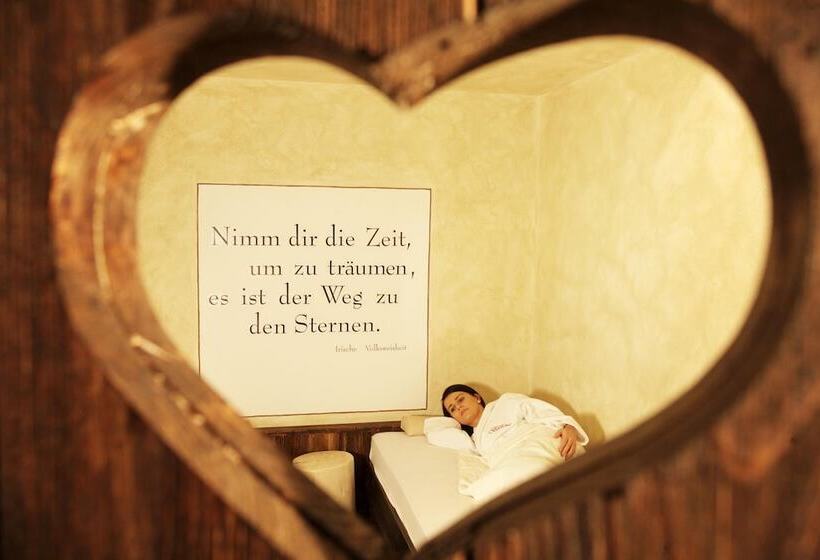 Nimm dir die Zeit,
um zu träumen,
es ist der Weg zu
den Sternen.
Irische